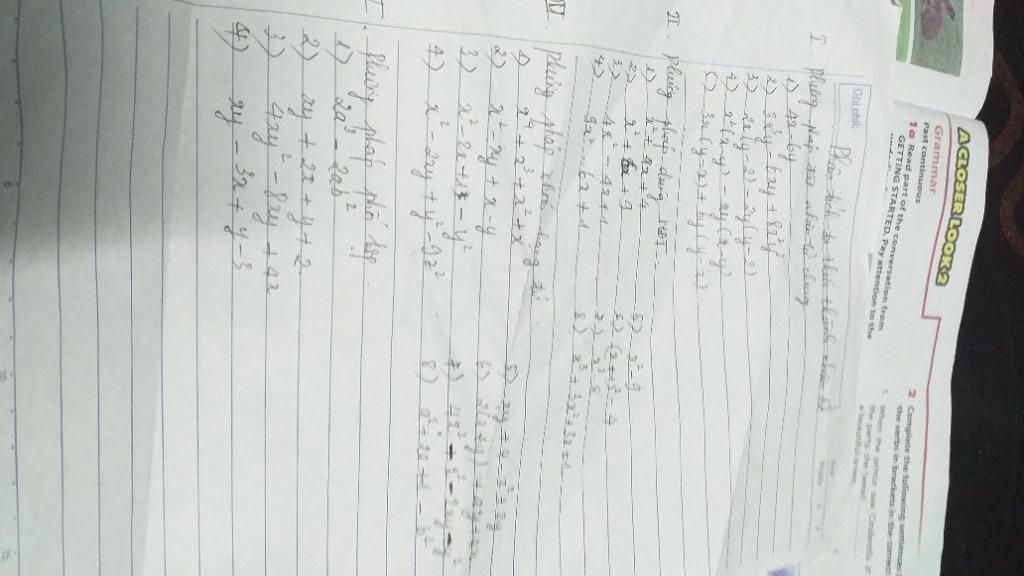 A CLOSER LOOK 2
Grammar
Past continuous
1a Read part of the conversation from
GETTING STARTED. Pay attention to the
2 Complete the following sentences
the verbs in brackets in the correct
1. When the prince saw Cinderella at
the party, she (wear)
a beautiful dress.
Ghi chú:
Phân tích đa thức thành nhân tử
I. Phương pháp đặt nhân tử chung
1) 4x - 6y
2) 3x³y - 6xy + 8x²y²
3) 2x(y-2) - 2y(y-2)
4) x²(x-y) - xy(x-y)
5) 3x(y-x) + 6y(y-x)
II. Phương pháp dùng HĐT
1) x² + 4x + 4
2) x² + 6x + 9
3) 4x² - 4x + 1
4) 9x² - 6x + 1
5) x² - 9
6) (x+1)² - 4
7) x³ - 8
8) x³ + 3x² + 3x + 1
III. Phương pháp nhóm hạng tử.
1) x⁴ + x³ + x² + x
2) x² - xy + x - y
3) x² - 2x + 1 - y²
4) x² - 2xy + y² - 9z²
6) 2(x+y)
. Phương pháp phối hợp.
1) 2a³ - 2ab²
2) xy + 2x + y + 2
3) 4xy² - 8xy + 4x
4) xy - 3x + y - 3